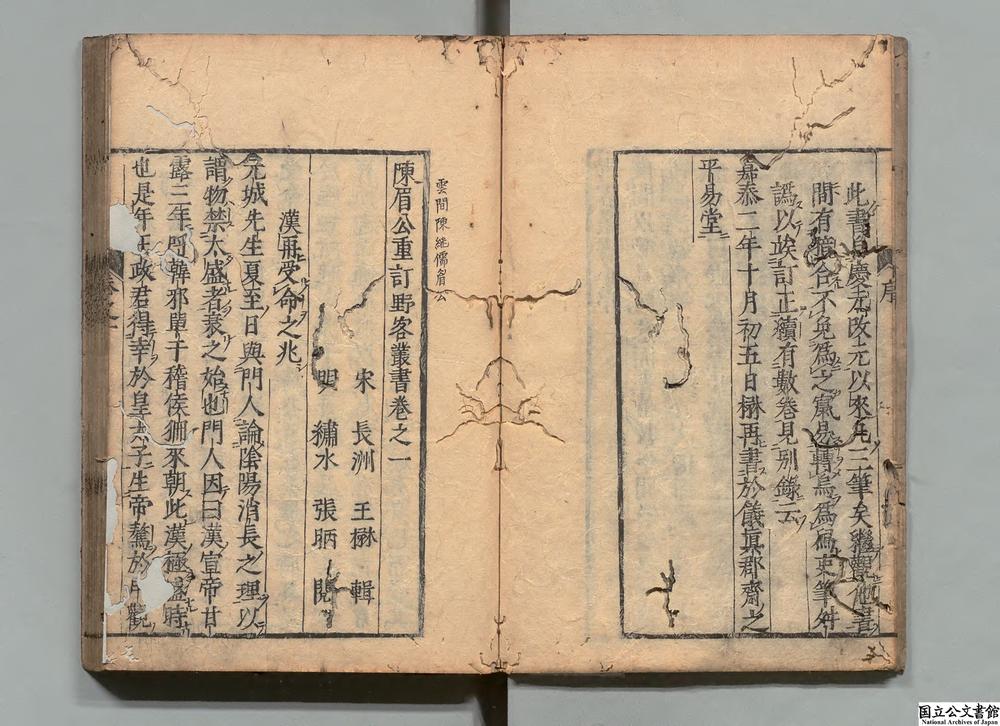 此書自慶元改元以來凡三筆矣繼觀他書
間有暗合不免為之竄易轉烏為舄吏筆舛
譌以俟訂正續有數卷見別錄云
嘉泰二年十月初五日楙再書於儀真郡齋之
平易堂
序
雲間陳繼儒眉公
陳眉公重訂野客叢書卷之一
宋 長洲 王楙 輯
明 繡水 張昞 閱
漢再受命之兆
元城先生夏至日與門人論陰陽消長之理以
謂物禁太盛者衰之始也門人因曰漢宣帝甘
露三年呼韓邪單于稽侯狦來朝此漢極盛時
也是年王政君得幸於皇太子生帝驁於甲觀
国立公文書館
National Archives of Japan